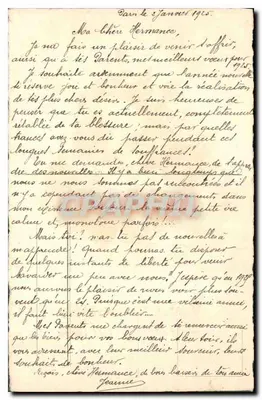 Paris le 3 Janvier 1915.
Ma Chère Hermance,
Je me fais un plaisir de venir t'offrir,
ainsi qu'à tes Parents, mes meilleurs vœux pour
1915.
Je souhaite ardemment que l'année nouvelle
te réserve joie et bonheur et voie la réalisation
de tes plus chers désirs. Je suis heureuse de
penser que tu es actuellement complètement
rétablie de ta blessure, mais par quelles
transes avez-vous dû passer pendant ces
longues semaines de souffrances!
Tu me demandes, chère Hermance, de t'
des nouelles. Il y a bien longtemps que
nous ne nous sommes pas rencontrées et il
n'y a cependant pas de changements dans
mon petite vie
calme et monotone parfois!...
Mais toi, n'as-tu pas de nouvelles à
m'apprendre? Quand pourras-tu disposer
de quelques instants de liberté pour venir
bavarder un peu avec nous. J'espère qu'en 1915
nous aurons le plaisir de nous voir plus sou-
vent qu'en une vilaine année,
il faut bien vite l'oublier.
Mes Parents me chargent de te remercier ainsi
que les tiens pour vos bons vœux. A leur tour, ils
vous adressent, avec leur meilleur souvenir, leurs
souhaits de bonheur.
Reçois, chère Hermance, de bons baisers de ton amie
Jeanne
CPAPHIL